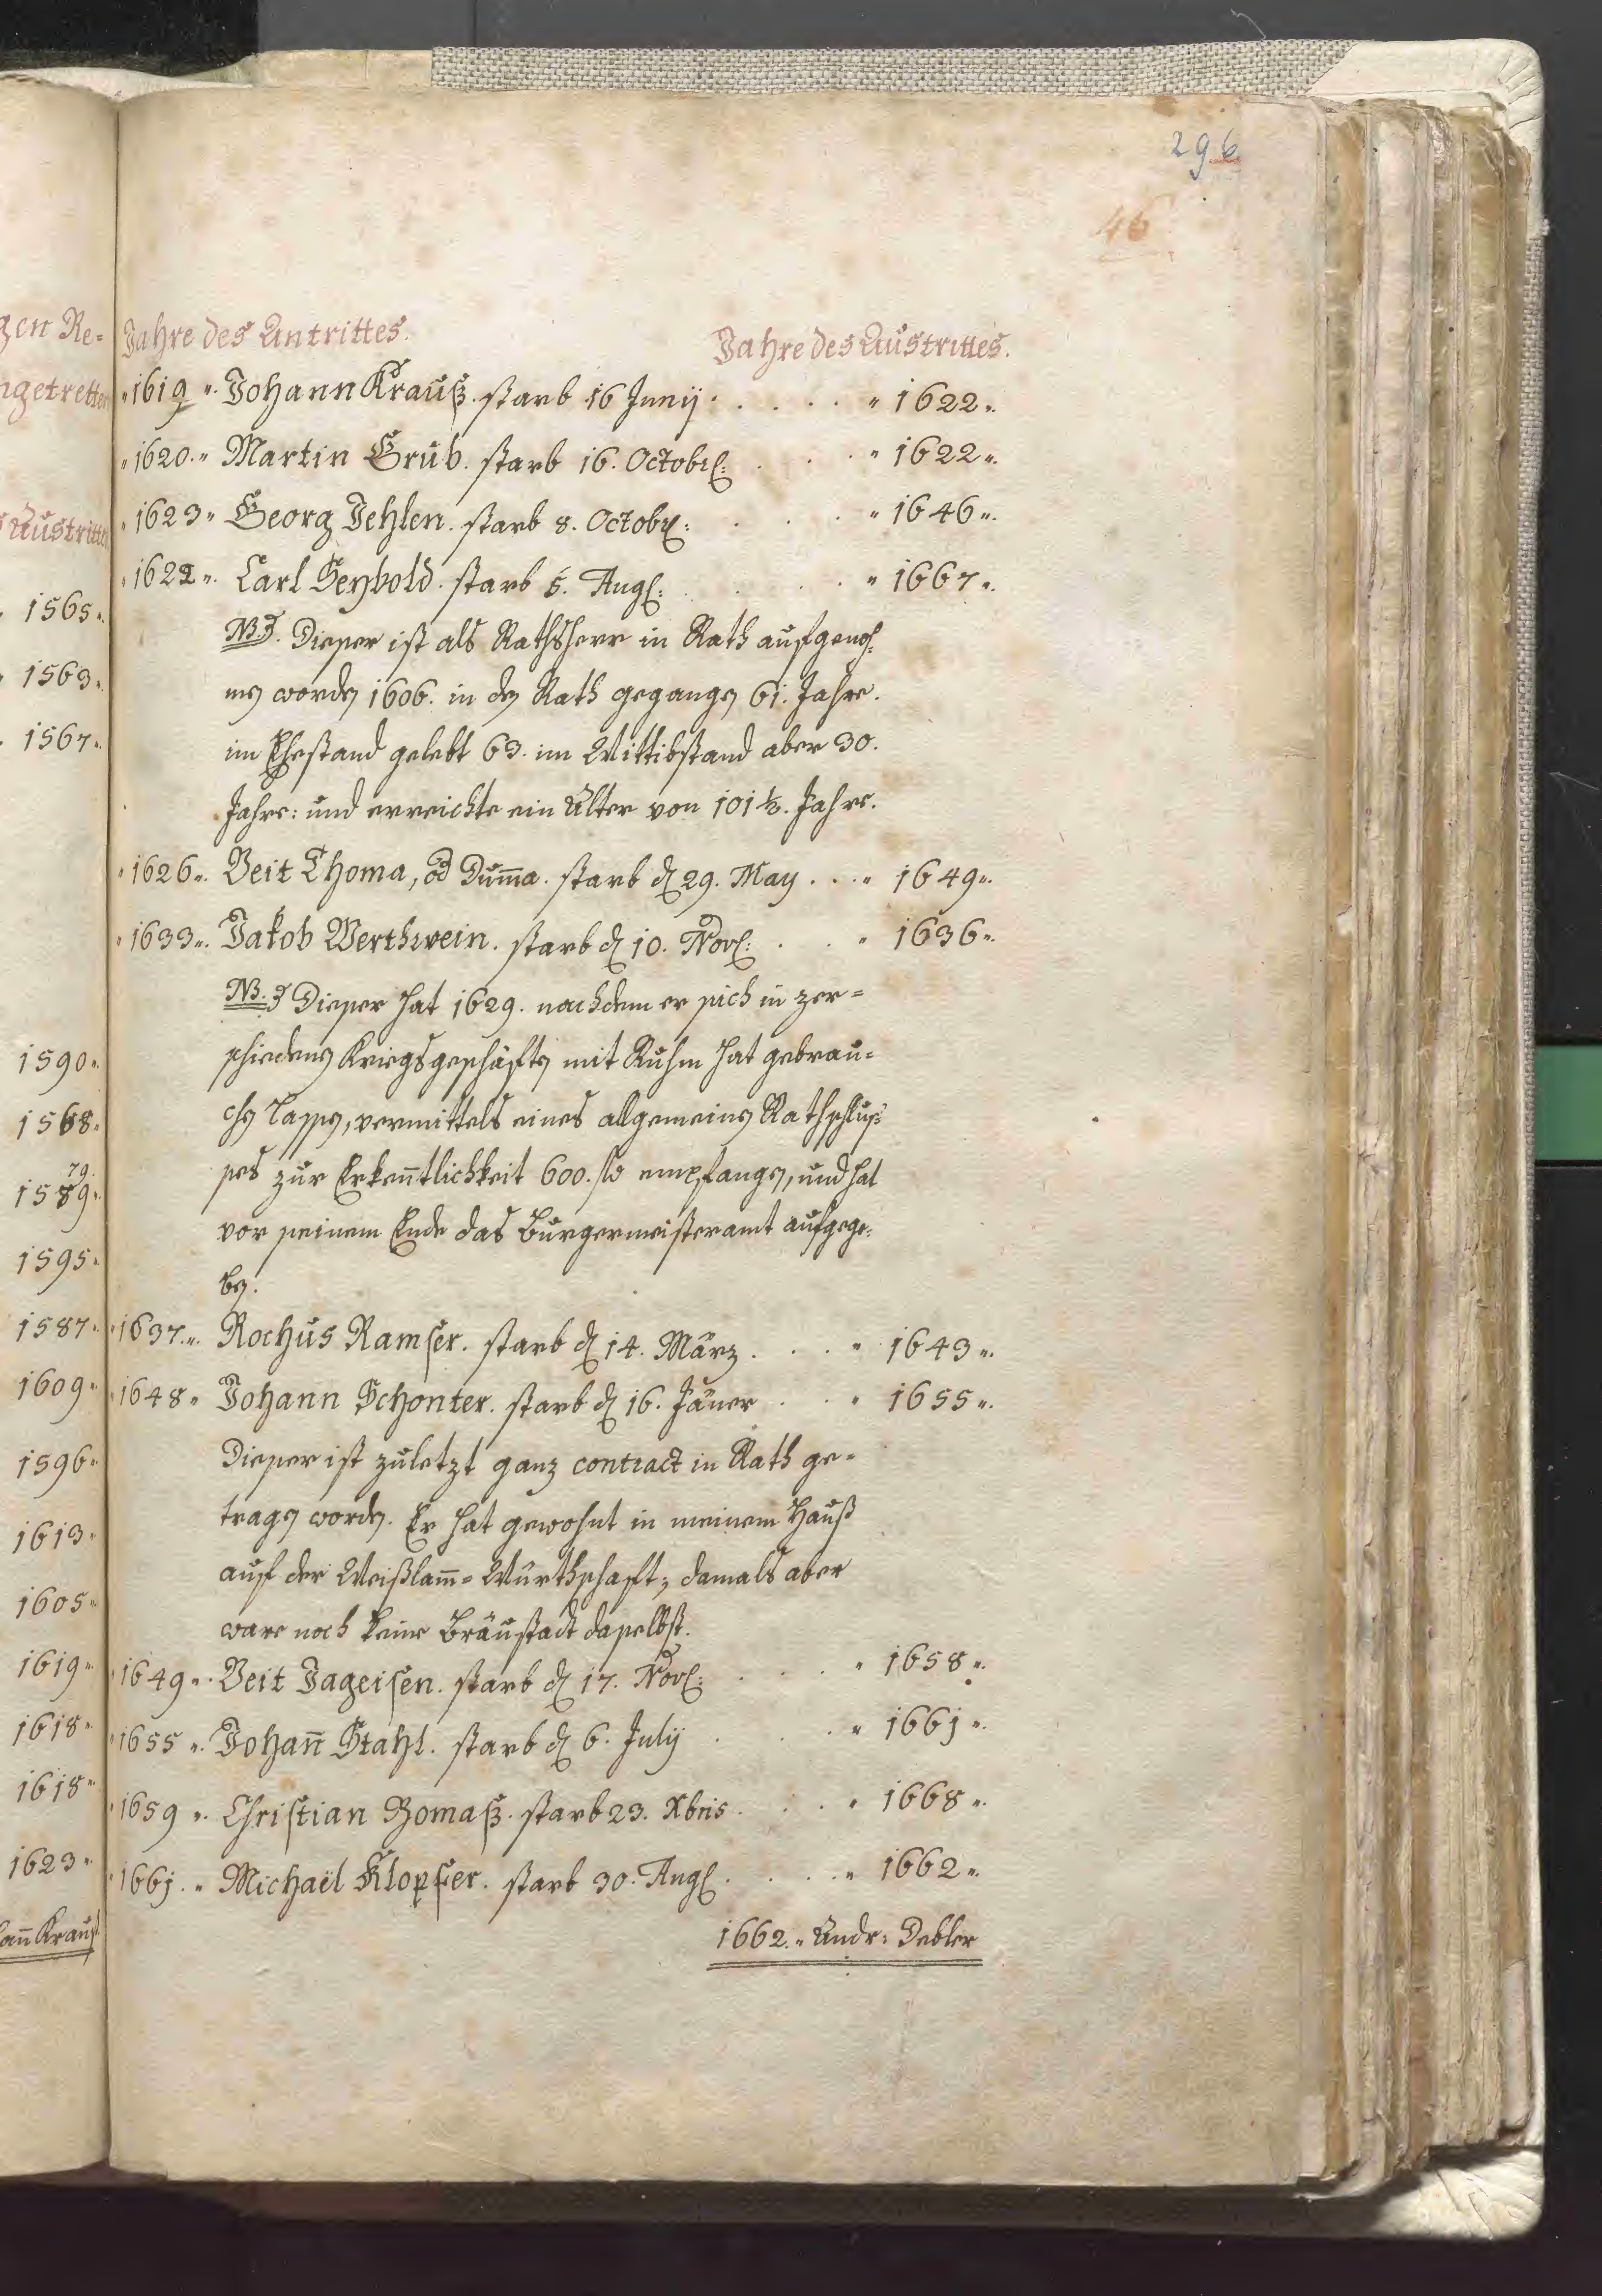 296
46
Jahre des Antrittes. Jahre des Austrittes.
"1619". Johann Krauß. starb 16 Junij . . . . . " 1622".
"1620." Martin Grüb. starb 16. Octobr: . . . " 1622".
"1623" Georg Jehlen. starb 8. Octobr: . . . " 1646".
"1622". Carl Seybold. starb 5. Aug: . . . " 1667".
NB. Dieser ist als Rathsherr in Rath aufgenom̄=
men worden 1606. in den Rath gegangen 61. Jahre.
im Ehestand gelebt 63. im Wittibstand aber 30.
Jahre: und erreichte ein Alter von 101½. Jahre.
"1626". Veit Thoma, od Dum̄a. starb d 29. May . . . " 1649".
"1633". Jakob Werthwein. starb d 10. Nov: . . . " 1636".
NB. Dieser hat 1629. nachdem er sich in ver=
schiedenen Kriegsgeschäften mit Ruhm hat gebrau=
chen lassen, vermittels eines allgemeinen Rathschlus=
ses zur Erken̄tlichkeit 600. fl empfangen, und hat
vor seinem Ende das Burgermeisteramt aufgege=
ben.
"1637.". Rochus Ramser. starb d 14. März . . . . " 1643".
"1648" Johann Schonter. starb d 16. Jäner . . " 1655".
Dieser ist zuletzt ganz contract in Rath ge=
tragen worden. Er hat gewohnt in meinem Hauß
auf der Weißlam̄= Würthschaft; damals aber
ware noch keine Bräustadt daselbst.
"1649". Veit Jageisen. starb d 17. Nov: . . . " 1658".
"1655". Johan̄ Stahl. starb d 6. July . . . " 1661".
"1659". Christian Bomaß. starb 23. Xbris . . . . " 1668".
"1661." Michaël Klopfer. starb 30. Aug . . . . " 1662".
1662." Andr: Debler
gen Re=
ngetretten
Austritte
1565".
1563".
1567".
1590".
1568".
79.
1589".
1595"
1587"
1609"
1596"
1613"
1605"
1619"
1618"
1618"
1623"
an̄ Krauß